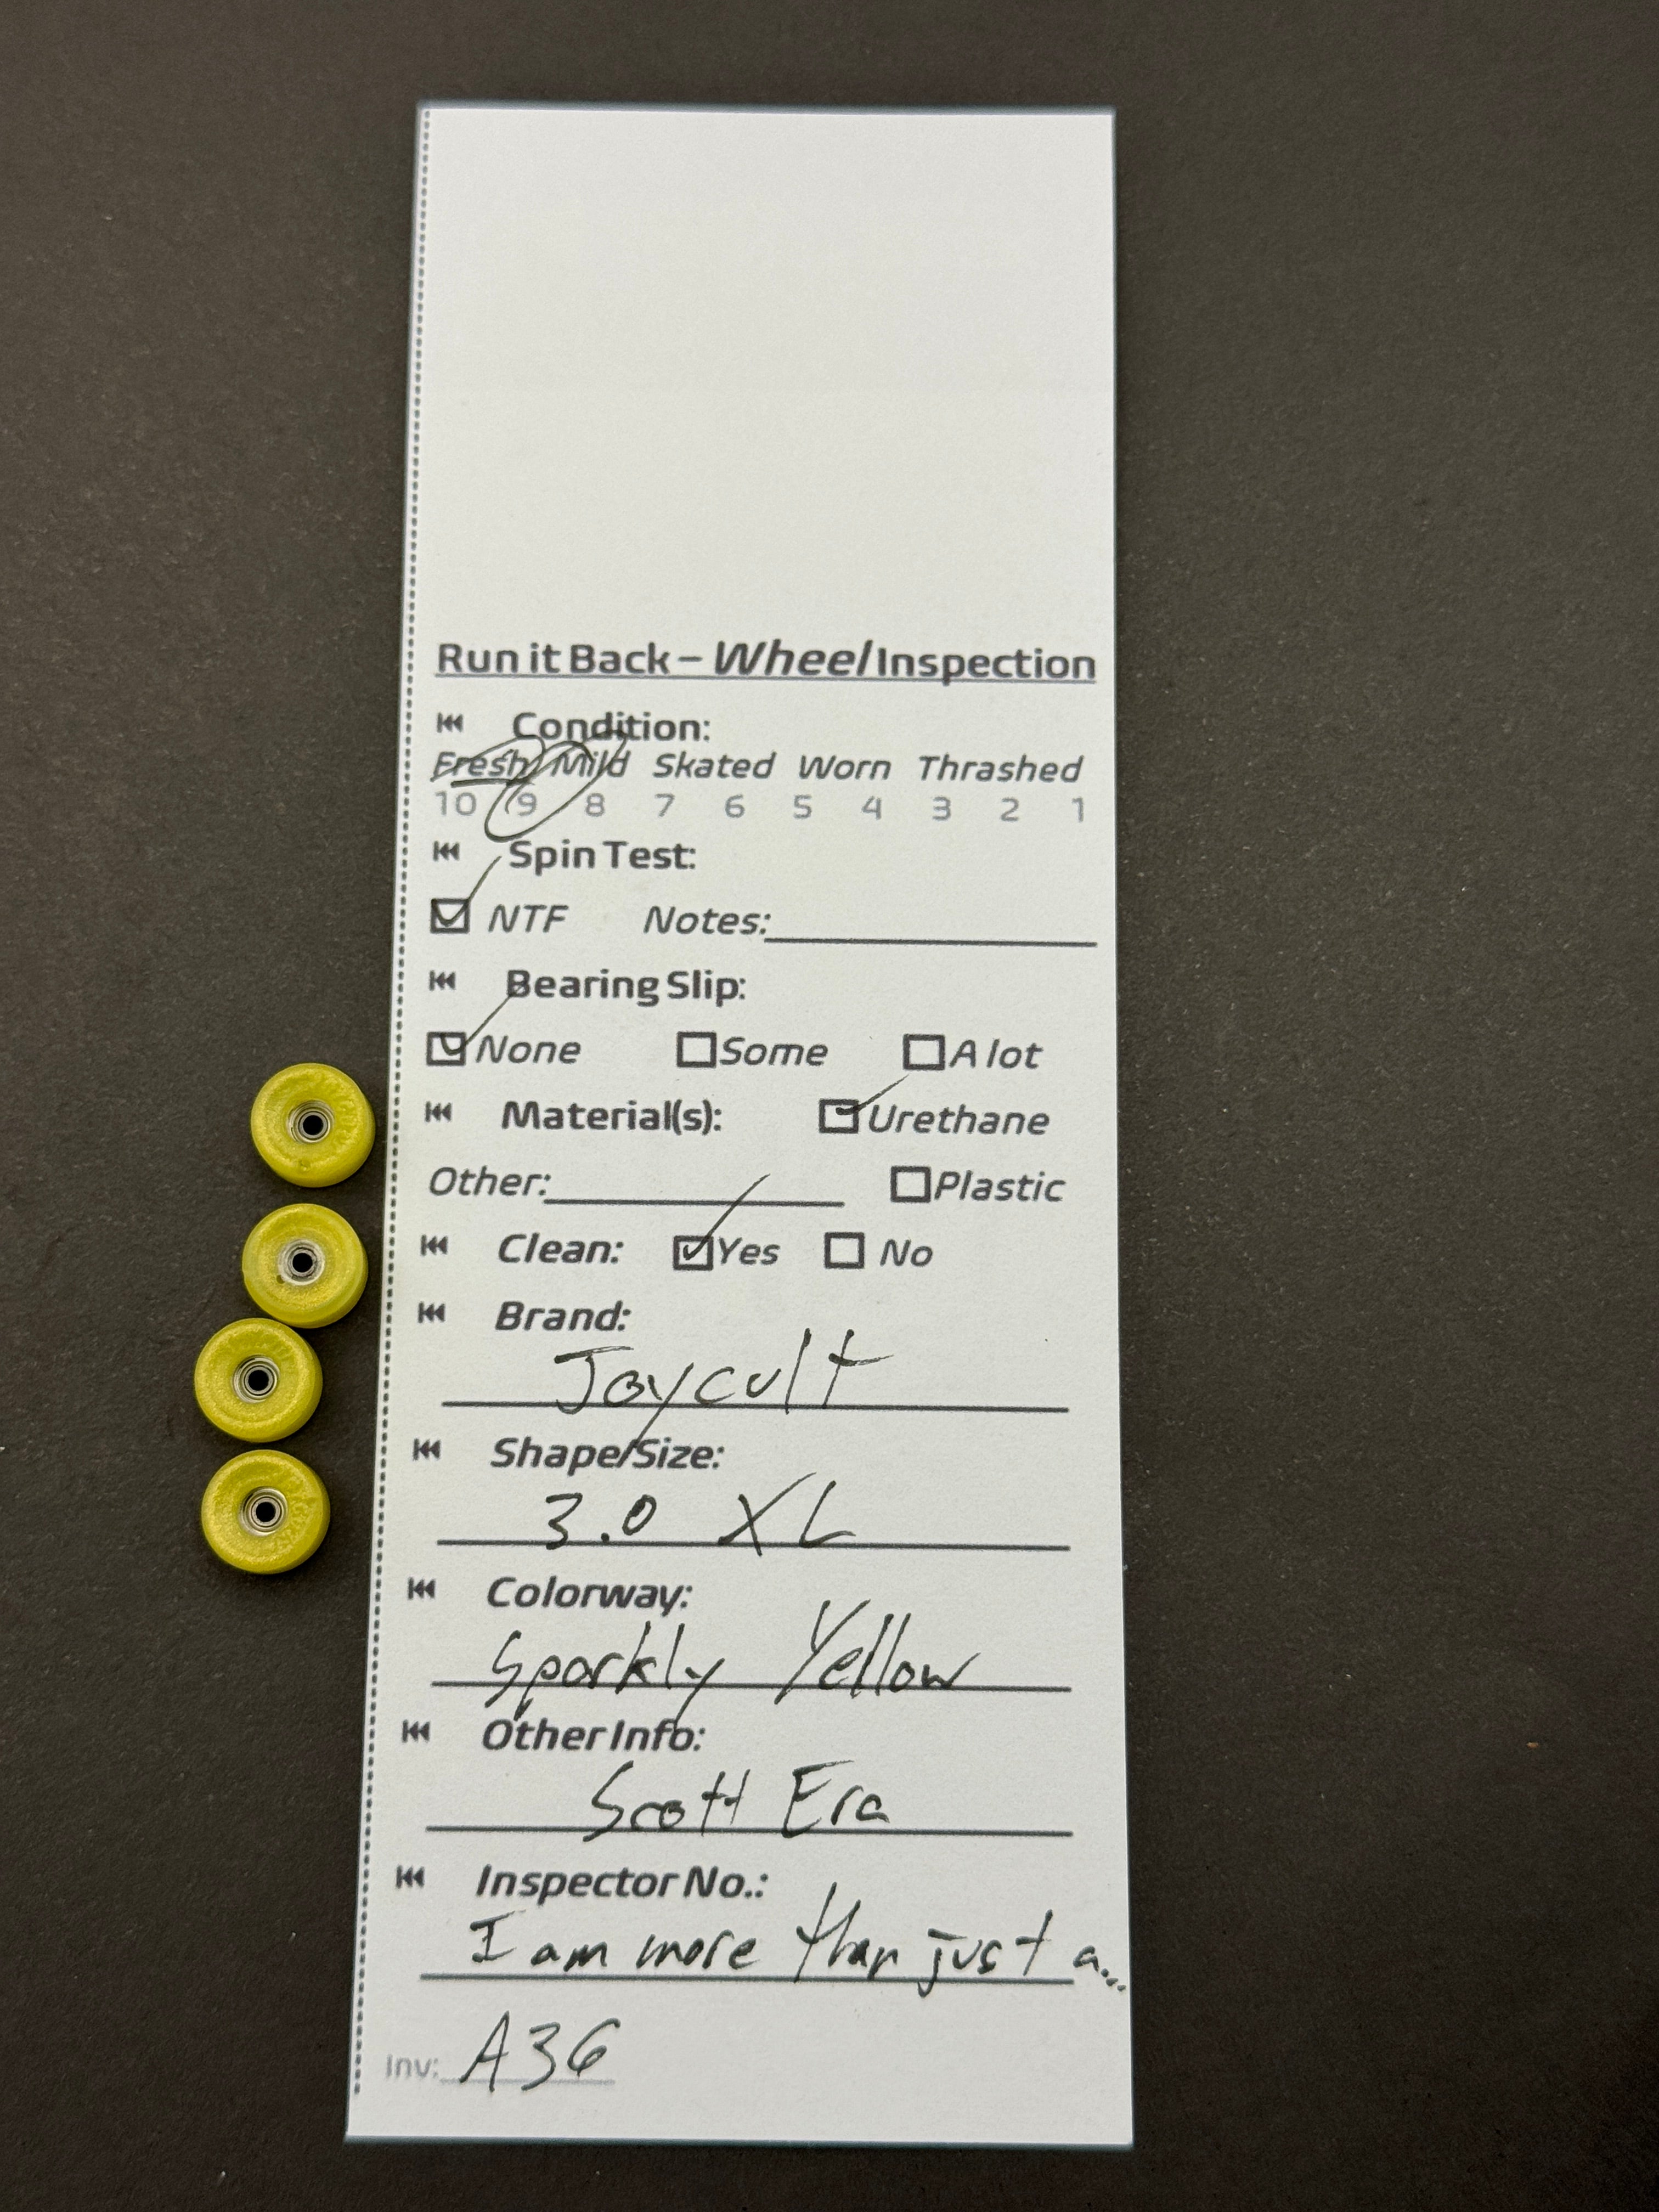 Run it Back – Wheel Inspection
Condition:
Fresh Mild Skated Worn Thrashed
10 9 8 7 6 5 4 3 2 1
Spin Test:
NTF Notes:
Bearing Slip:
None Some A lot
Material(s): Urethane
Other: Plastic
Clean: Yes No
Brand:
Joycult
Shape/Size:
3.0 XL
Colorway:
Sparkly Yellow
Other Info:
Scott Era
Inspector No.:
I am more than just a...
Inv: A36